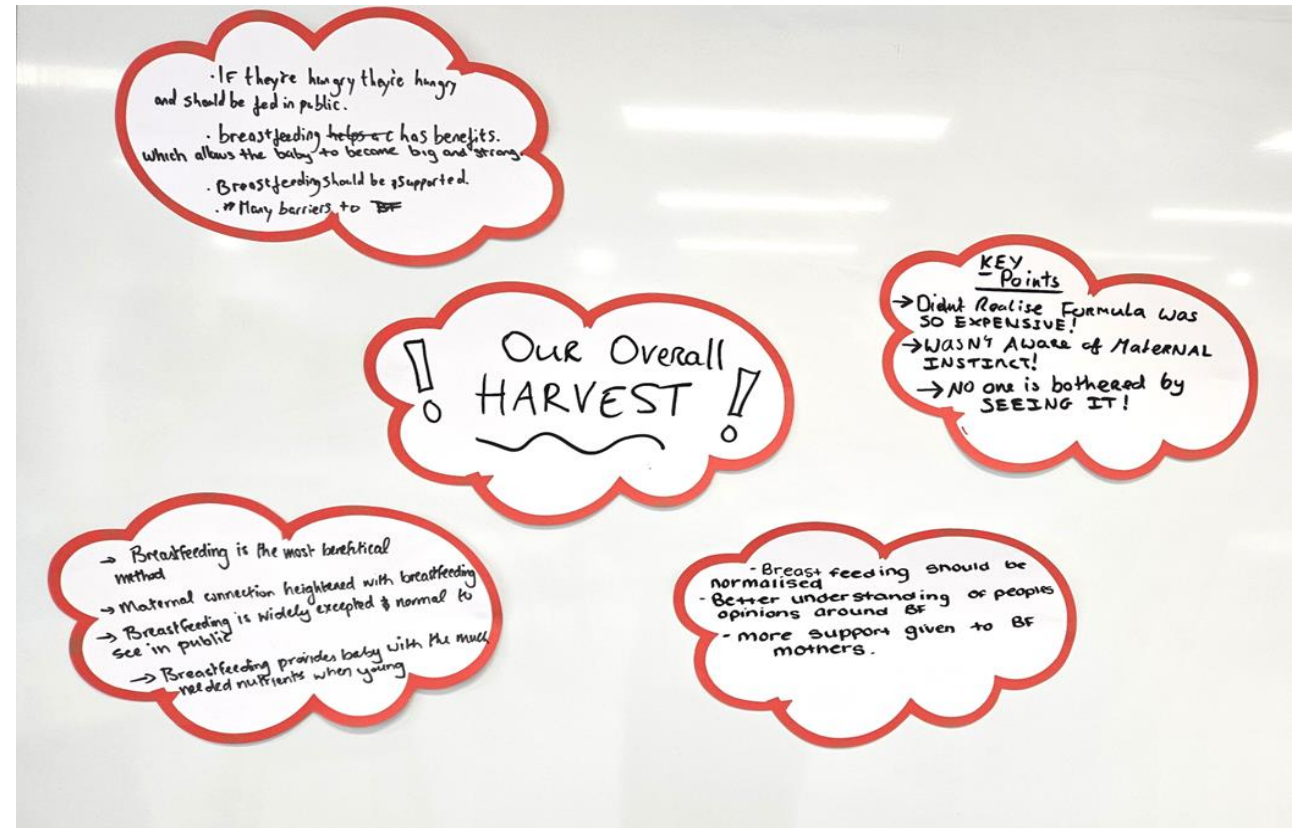 · IF they're hungry they're hungry
and should be fed in public.
· breastfeeding helps a c has benefits.
which allows the baby to become big and strong.
· Breastfeeding should be supported.
· Many barriers to BF
! OUR Overall !
HARVEST
KEY
Points
→ Didnt Realise FORMULA was
SO EXPENSIVE!
→ WASN'T AWARE of MATERNAL
INSTINCT!
→ NO one is bothered by
SEEING IT!
→ Breastfeeding is the most benefitical
method
→ Maternal connection heightened with breastfeeding
→ Breastfeeding is widely excepted & normal to
see in public
→ Breastfeeding provides baby with the much
needed nutrients when young
- Breast feeding should be
normalised
- Better understanding of peoples
opinions around BF
- more support given to BF
mothers.